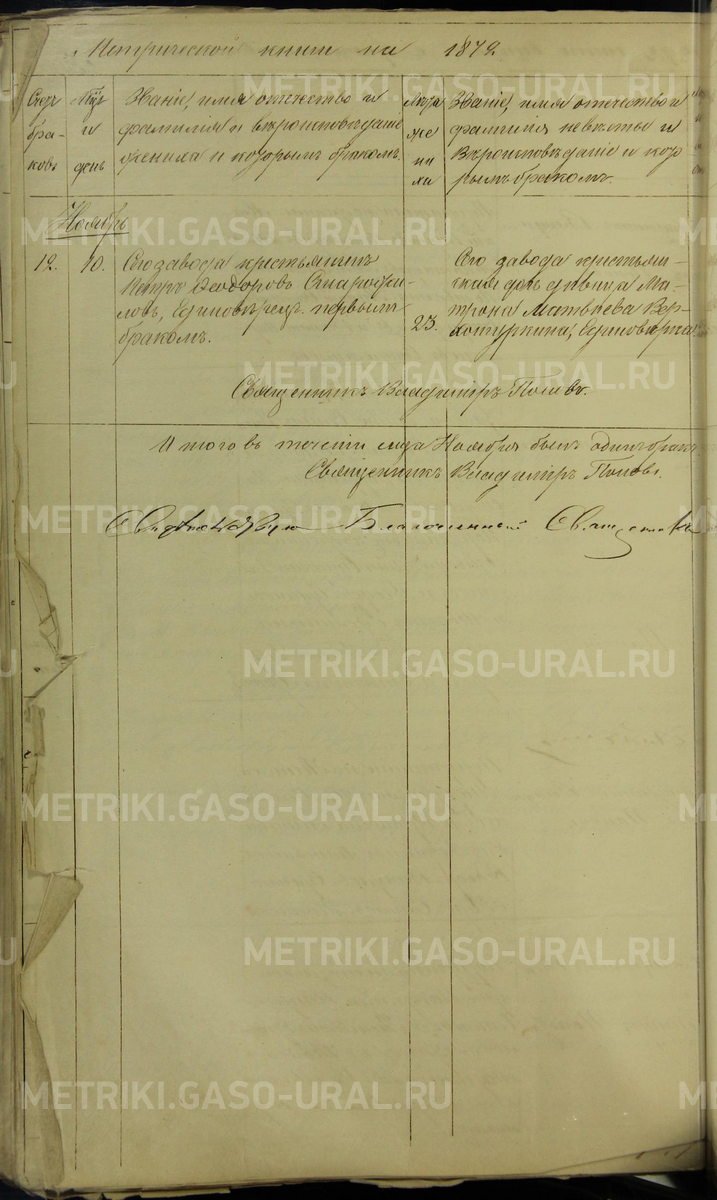 Метрической книги на 1872
Счетъ
бра-
ковъ
Мѣц
и
день
Званіе, имя отчество и
фамилія и вѣроисповѣданіе
жениха и которымъ бракомъ.
Лѣта
же
ни
ха
Званіе, имя отчество и
фамилія невѣсты и
вѣроисповѣданіе и кото
рымъ бракомъ.
Ноябрь
12. 10.
Сего завода крестьянинъ
Петръ Федоровъ
ловъ, Единовѣрец. первымъ
бракомъ.
23.
Сего завода крестьян-
ская дѣвица Ма-
трона Матвѣева Вер-
хотуркина, Единовѣрка
Священникъ Владиміръ Поповъ.
Итого въ теченіи мѣсяца Ноября былъ одинъ бракъ
Священникъ Владиміръ Поповъ.
Благочинный Священникъ
METRIKI.GASO-URAL.RU